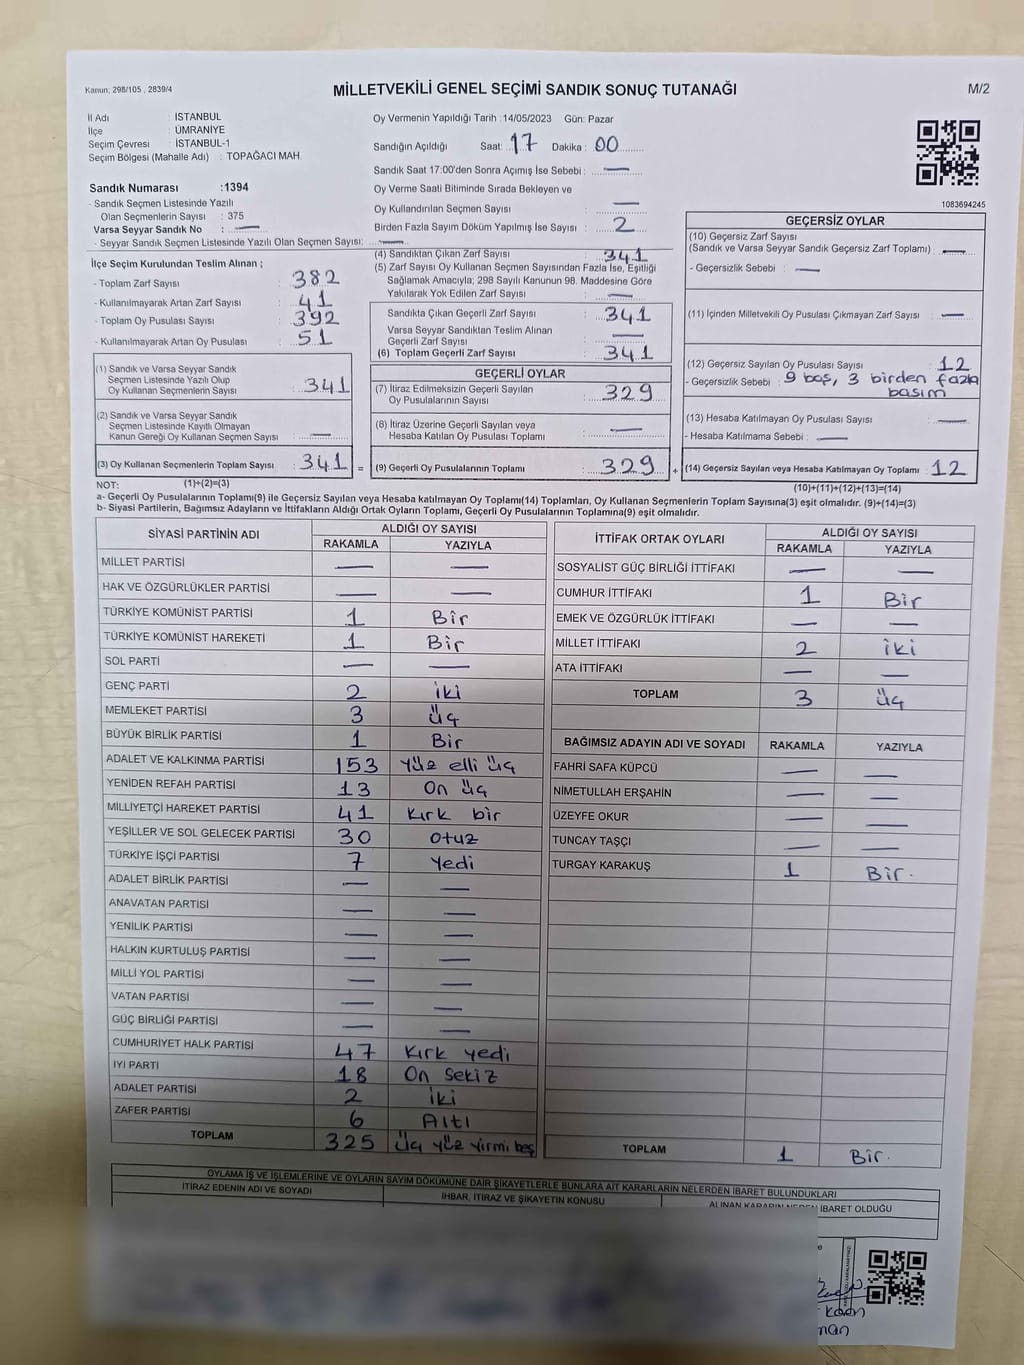 Kanun: 298/105 , 2839/4
MİLLETVEKİLİ GENEL SEÇİMİ SANDIK SONUÇ TUTANAĞI
M/2
İl Adı : İSTANBUL
İlçe : ÜMRANİYE
Seçim Çevresi : İSTANBUL-1
Seçim Bölgesi (Mahalle Adı) : TOPAĞACI MAH.
Sandık Numarası :1394
- Sandık Seçmen Listesinde Yazılı
Olan Seçmenlerin Sayısı : 375
Varsa Seyyar Sandık No : —
- Seyyar Sandık Seçmen Listesinde Yazılı Olan Seçmen Sayısı: —
Oy Vermenin Yapıldığı Tarih :14/05/2023 Gün: Pazar
Sandığın Açıldığı Saat: 17 Dakika : 00
Sandık Saat 17:00'den Sonra Açımış İse Sebebi : —
Oy Verme Saati Bitiminde Sırada Bekleyen ve
Oy Kullandırılan Seçmen Sayısı : —
Birden Fazla Sayım Döküm Yapılmış İse Sayısı : 2
1083694245
İlçe Seçim Kurulundan Teslim Alınan ;
- Toplam Zarf Sayısı : 382
- Kullanılmayarak Artan Zarf Sayısı : 41
- Toplam Oy Pusulası Sayısı : 392
- Kullanılmayarak Artan Oy Pusulası : 51
(1) Sandık ve Varsa Seyyar Sandık
Seçmen Listesinde Yazılı Olup
Oy Kullanan Seçmenlerin Sayısı : 341
(2) Sandık ve Varsa Seyyar Sandık
Seçmen Listesinde Kayıtlı Olmayan
Kanun Gereği Oy Kullanan Seçmen Sayısı : —
(3) Oy Kullanan Seçmenlerin Toplam Sayısı : 341 =
(4) Sandıktan Çıkan Zarf Sayısı : 341
(5) Zarf Sayısı Oy Kullanan Seçmen Sayısından Fazla İse, Eşitliği
Sağlamak Amacıyla; 298 Sayılı Kanunun 98. Maddesine Göre
Yakılarak Yok Edilen Zarf Sayısı : —
Sandıkta Çıkan Geçerli Zarf Sayısı : 341
Varsa Seyyar Sandıktan Teslim Alınan
Geçerli Zarf Sayısı : —
(6) Toplam Geçerli Zarf Sayısı : 341
GEÇERLİ OYLAR
(7) İtiraz Edilmeksizin Geçerli Sayılan
Oy Pusulalarının Sayısı : 329
(8) İtiraz Üzerine Geçerli Sayılan veya
Hesaba Katılan Oy Pusulası Toplamı : —
(9) Geçerli Oy Pusulalarının Toplamı : 329 +
GEÇERSİZ OYLAR
(10) Geçersiz Zarf Sayısı
(Sandık ve Varsa Seyyar Sandık Geçersiz Zarf Toplamı) : —
- Geçersizlik Sebebi : —
(11) İçinden Milletvekili Oy Pusulası Çıkmayan Zarf Sayısı : —
(12) Geçersiz Sayılan Oy Pusulası Sayısı : 12
- Geçersizlik Sebebi : 9 boş, 3 birden fazla
basım
(13) Hesaba Katılmayan Oy Pusulası Sayısı : —
- Hesaba Katılmama Sebebi : —
(14) Geçersiz Sayılan veya Hesaba Katılmayan Oy Toplamı : 12
NOT: (1)+(2)=(3)
(10)+(11)+(12)+(13)=(14)
a- Geçerli Oy Pusulalarının Toplamı(9) ile Geçersiz Sayılan veya Hesaba katılmayan Oy Toplamı(14) Toplamları, Oy Kullanan Seçmenlerin Toplam Sayısına(3) eşit olmalıdır. (9)+(14)=(3)
b- Siyasi Partilerin, Bağımsız Adayların ve İttifakların Aldığı Ortak Oyların Toplamı, Geçerli Oy Pusulalarının Toplamına(9) eşit olmalıdır.
SİYASİ PARTİNİN ADI ALDIĞI OY SAYISI
RAKAMLA YAZIYLA
MİLLET PARTİSİ — —
HAK VE ÖZGÜRLÜKLER PARTİSİ — —
TÜRKİYE KOMÜNİST PARTİSİ 1 Bir
TÜRKİYE KOMÜNİST HAREKETİ 1 Bir
SOL PARTİ — —
GENÇ PARTİ 2 iki
MEMLEKET PARTİSİ 3 üç
BÜYÜK BİRLİK PARTİSİ 1 Bir
ADALET VE KALKINMA PARTİSİ 153 Yüz elli üç
YENİDEN REFAH PARTİSİ 13 On üç
MİLLİYETÇİ HAREKET PARTİSİ 41 Kırk bir
YEŞİLLER VE SOL GELECEK PARTİSİ 30 Otuz
TÜRKİYE İŞÇİ PARTİSİ 7 Yedi
ADALET BİRLİK PARTİSİ — —
ANAVATAN PARTİSİ — —
YENİLİK PARTİSİ — —
HALKIN KURTULUŞ PARTİSİ — —
MİLLİ YOL PARTİSİ — —
VATAN PARTİSİ — —
GÜÇ BİRLİĞİ PARTİSİ — —
CUMHURİYET HALK PARTİSİ 47 Kırk yedi
İYİ PARTİ 18 On sekiz
ADALET PARTİSİ 2 iki
ZAFER PARTİSİ 6 Altı
TOPLAM 325 üç yüz yirmi beş
İTTİFAK ORTAK OYLARI ALDIĞI OY SAYISI
RAKAMLA YAZIYLA
SOSYALİST GÜÇ BİRLİĞİ İTTİFAKI — —
CUMHUR İTTİFAKI 1 Bir
EMEK VE ÖZGÜRLÜK İTTİFAKI — —
MİLLET İTTİFAKI 2 iki
ATA İTTİFAKI — —
TOPLAM 3 üç
BAĞIMSIZ ADAYIN ADI VE SOYADI RAKAMLA YAZIYLA
FAHRİ SAFA KÜPCÜ — —
NİMETULLAH ERŞAHİN — —
ÜZEYFE OKUR — —
TUNCAY TAŞÇI — —
TURGAY KARAKUŞ 1 Bir.
TOPLAM 1 Bir.
OYLAMA İŞ VE İŞLEMLERİNE VE OYLARIN SAYIM DÖKÜMÜNE DAİR ŞİKAYETLERLE BUNLARA AİT KARARLARIN NELERDEN İBARET BULUNDUKLARI
İTİRAZ EDENİN ADI VE SOYADI İHBAR, İTİRAZ VE ŞİKAYETİN KONUSU ALINAN KARARIN NEDEN İBARET OLDUĞU